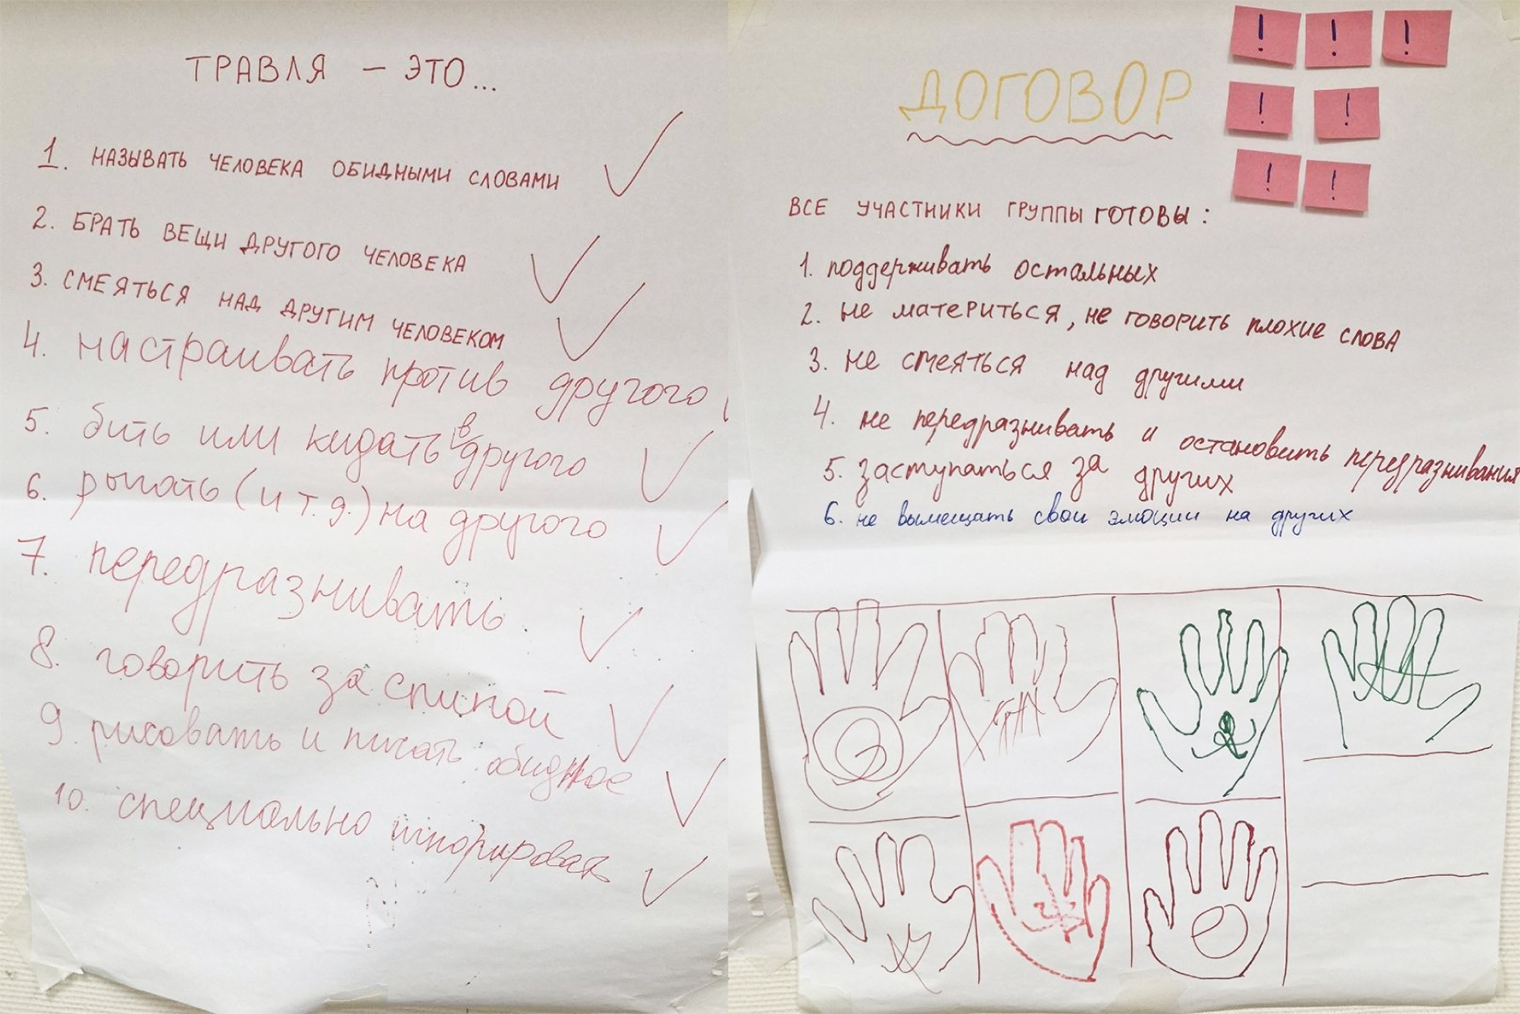 ТРАВЛЯ – ЭТО...
1. НАЗЫВАТЬ ЧЕЛОВЕКА ОБИДНЫМИ СЛОВАМИ
2. БРАТЬ ВЕЩИ ДРУГОГО ЧЕЛОВЕКА
3. СМЕЯТЬСЯ НАД ДРУГИМ ЧЕЛОВЕКОМ
4. настраивать против другого
5. бить или кидать в другого
6. рычать (и т.д.) на другого
7. передразнивать
8. говорить за спиной
9. рисовать и писать обидное
10. специально игнорировать
ДОГОВОР
! ! !
! !
! !
ВСЕ УЧАСТНИКИ ГРУППЫ ГОТОВЫ:
1. поддерживать остальных
2. не материться, не говорить плохие слова
3. не смеяться над другими
4. не передразнивать и остановить передразнивания
5. заступаться за других
6. не вымещать свои эмоции на других